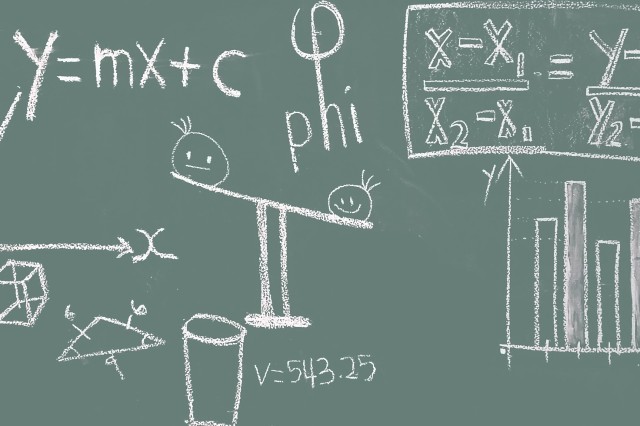 y = mx + c
φ
phi
x - x₁ = y -
x₂ - x₁ y₂ -
y
x
6 6
9
v=543.25